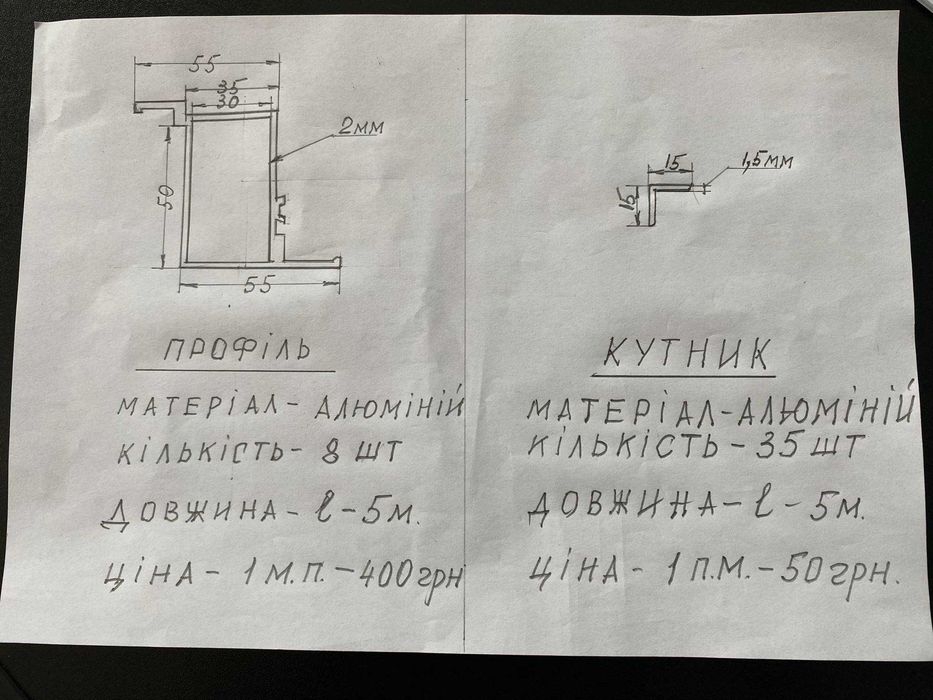 55
35
30
2мм
50
55
ПРОФІЛЬ
МАТЕРІАЛ- АЛЮМІНІЙ
КІЛЬКІСТЬ- 8 ШТ
ДОВЖИНА - l - 5 м.
ЦІНА - 1 М.П. - 400 грн
15
1,5мм
15
КУТНИК
МАТЕРІАЛ-АЛЮМІНІЙ
КІЛЬКІСТЬ - 35 ШТ
ДОВЖИНА - l - 5м.
ЦІНА - 1 П.М. - 50 грн.